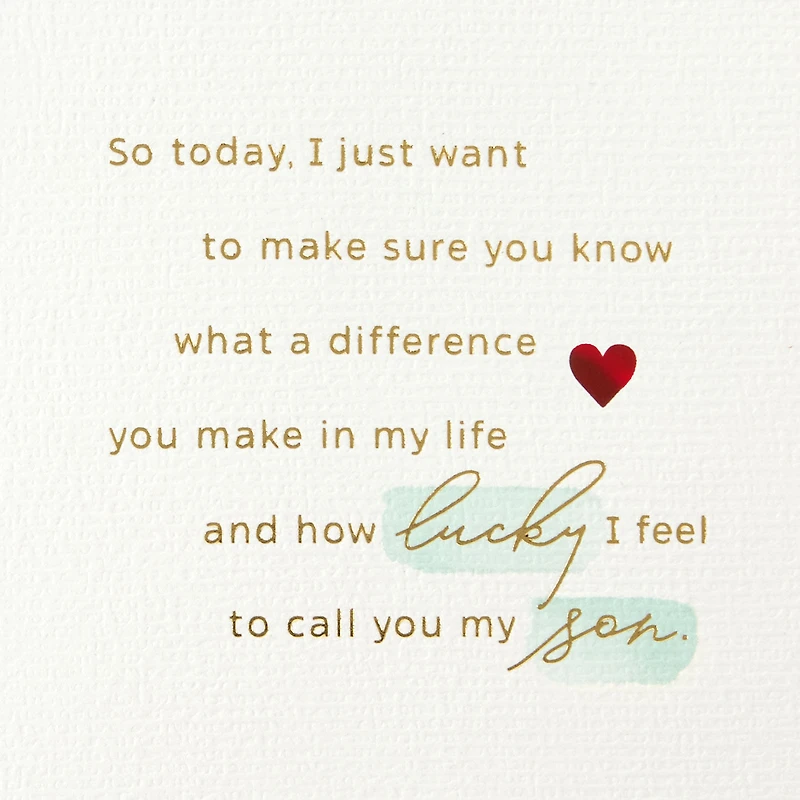 So today, I just want
to make sure you know
what a difference
you make in my life
and how lucky I feel
to call you my son.